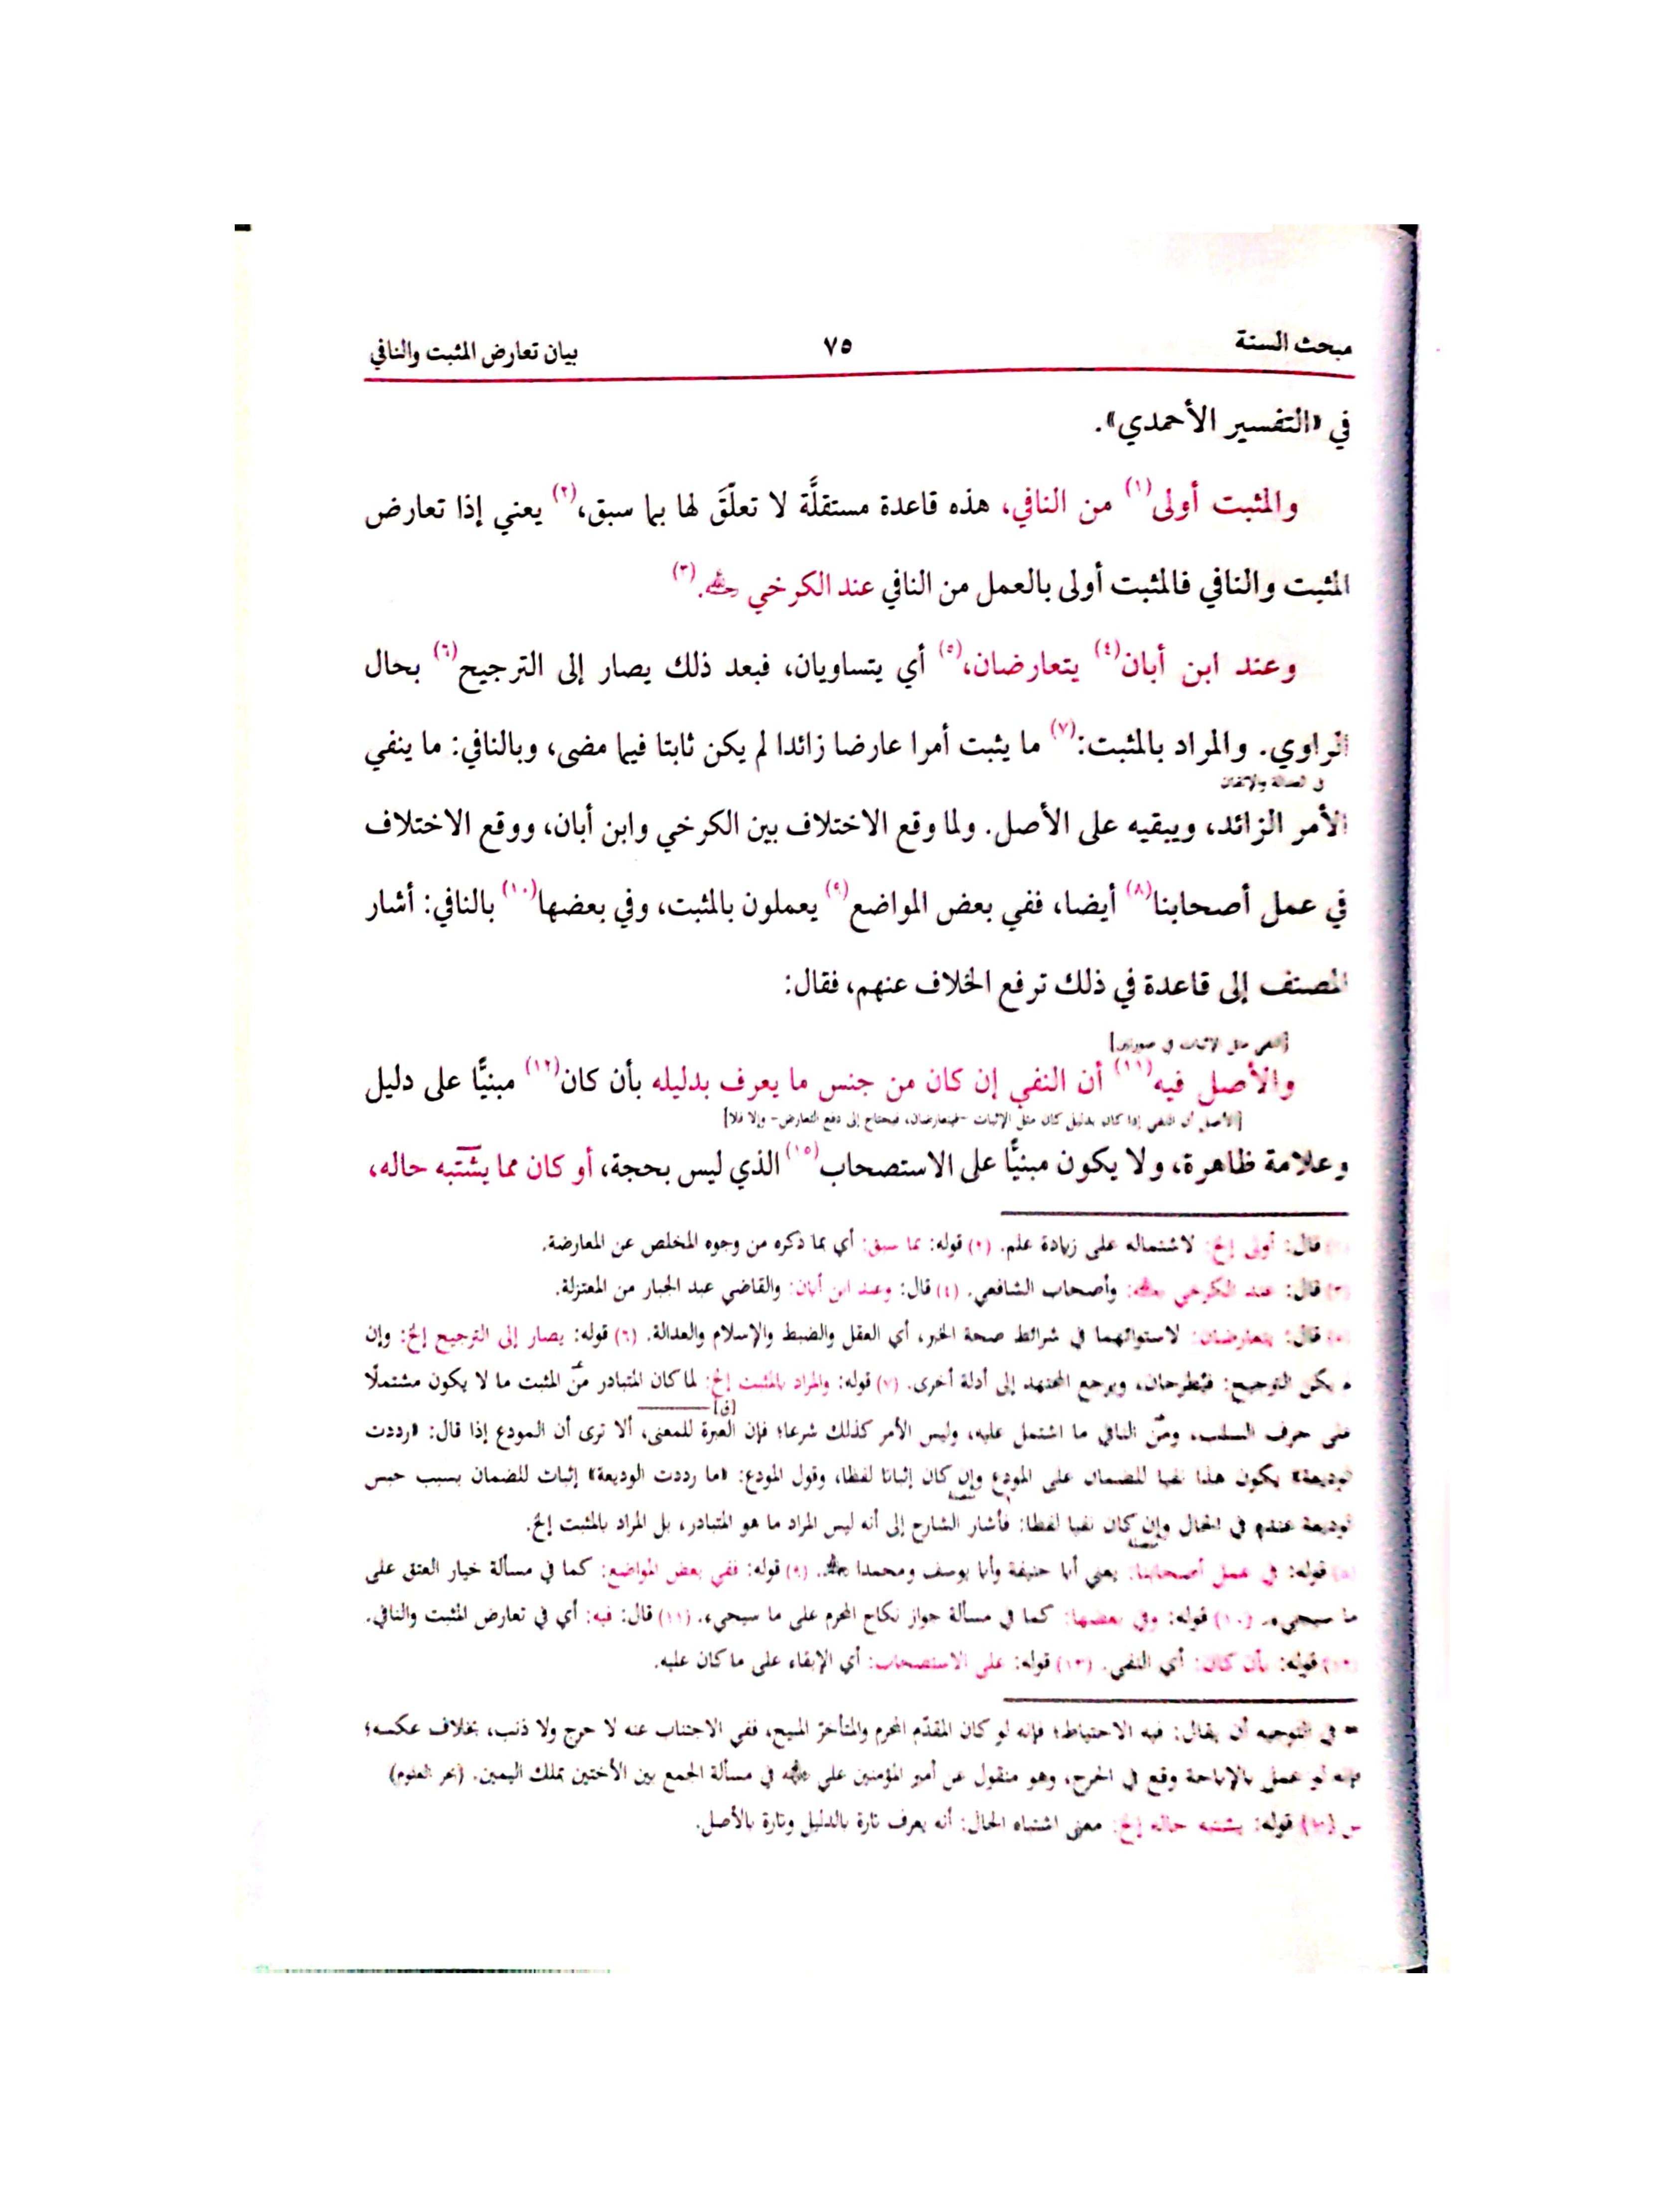 مبحث السنة ٧٥ بيان تعارض المثبت والنافي
في «التفسير الأحمدي».
والمثبت أولى(١) من النافي، هذه قاعدة مستقلَّة لا تعلّقَ لها بما سبق،(٢) يعني إذا تعارض
المثبت والنافي فالمثبت أولى بالعمل من النافي عند الكرخي رحمه الله.(٣)
وعند ابن أبان(٤) يتعارضان،(٥) أي يتساويان، فبعد ذلك يصار إلى الترجيح(٦) بحال
الراوي. والمراد بالمثبت:(٧) ما يثبت أمرا عارضا زائدا لم يكن ثابتا فيما مضى، وبالنافي: ما ينفي
في العدالة والإتقان
الأمر الزائد، ويبقيه على الأصل. ولما وقع الاختلاف بين الكرخي وابن أبان، ووقع الاختلاف
في عمل أصحابنا(٨) أيضا، ففي بعض المواضع(٩) يعملون بالمثبت، وفي بعضها(١٠) بالنافي: أشار
المصنف إلى قاعدة في ذلك ترفع الخلاف عنهم، فقال:
[النفي مثل الإثبات في صورتين]
والأصل فيه(١١) أن النفي إن كان من جنس ما يعرف بدليله بأن كان(١٢) مبنيًّا على دليل
[الأصل أن النفي إذا كان بدليل كان مثل الإثبات -فيتعارضان، فيحتاج إلى دفع التعارض- وإلا فلا]
وعلامة ظاهرة، ولا يكون مبنيًّا على الاستصحاب(١٥) الذي ليس بحجة، أو كان مما يشتبه حاله،
قال: أولى إلخ: لاشتماله على زيادة علم. (٢) قوله: بما سبق: أي بما ذكره من وجوه المخلص عن المعارضة.
(٣) قال: عند الكرخي رحمه الله: وأصحاب الشافعي. (٤) قال: وعند ابن أبان: والقاضي عبد الجبار من المعتزلة.
(٥) قال: يتعارضان: لاستوائهما في شرائط صحة الخبر، أي العقل والضبط والإسلام والعدالة. (٦) قوله: يصار إلى الترجيح إلخ: وإن
لم يكن الترجيح: فيُطرحان، ويرجع المجتهد إلى أدلة أخرى. (٧) قوله: والمراد بالمثبت إلخ: لما كان المتبادر من المثبت ما لا يكون مشتملًا
[ق]
على حرف السلب، ومن النافي ما اشتمل عليه، وليس الأمر كذلك شرعا؛ فإن العبرة للمعنى، ألا ترى أن المودع إذا قال: «رددت
الوديعة» يكون هذا نفيا للضمان على المودع وإن كان إثباتا لفظا، وقول المودع: «ما رددت الوديعة» إثبات للضمان بسبب حبس
الوديعة عنده في الحال وإن كان نفيا لفظا: فأشار الشارح إلى أنه ليس المراد ما هو المتبادر، بل المراد بالمثبت إلخ.
(٨) قوله: في عمل أصحابنا: يعني أبا حنيفة وأبا يوسف ومحمدا. (٩) قوله: ففي بعض المواضع: كما في مسألة خيار العتق على
ما سيجيء. (١٠) قوله: وفي بعضها: كما في مسألة جواز نكاح المحرم على ما سيجيء. (١١) قال: فيه: أي في تعارض المثبت والنافي.
(١٢) قوله: بأن كان: أي النفي. (١٣) قوله: على الاستصحاب: أي الإبقاء على ما كان عليه.
= في التوجيه أن يقال: فيه الاحتياط؛ فإنه لو كان المقدّم المحرم والمتأخر المبيح، ففي الاجتناب عنه لا حرج ولا ذنب، بخلاف عكسه؛
فإنه لو عمل بالإباحة وقع في الحرج، وهو منقول عن أمير المؤمنين علي في مسألة الجمع بين الأختين بملك اليمين. (بحر العلوم)
قوله: يشتبه حاله إلخ: معنى اشتباه الحال: أنه يعرف تارة بالدليل وتارة بالأصل.